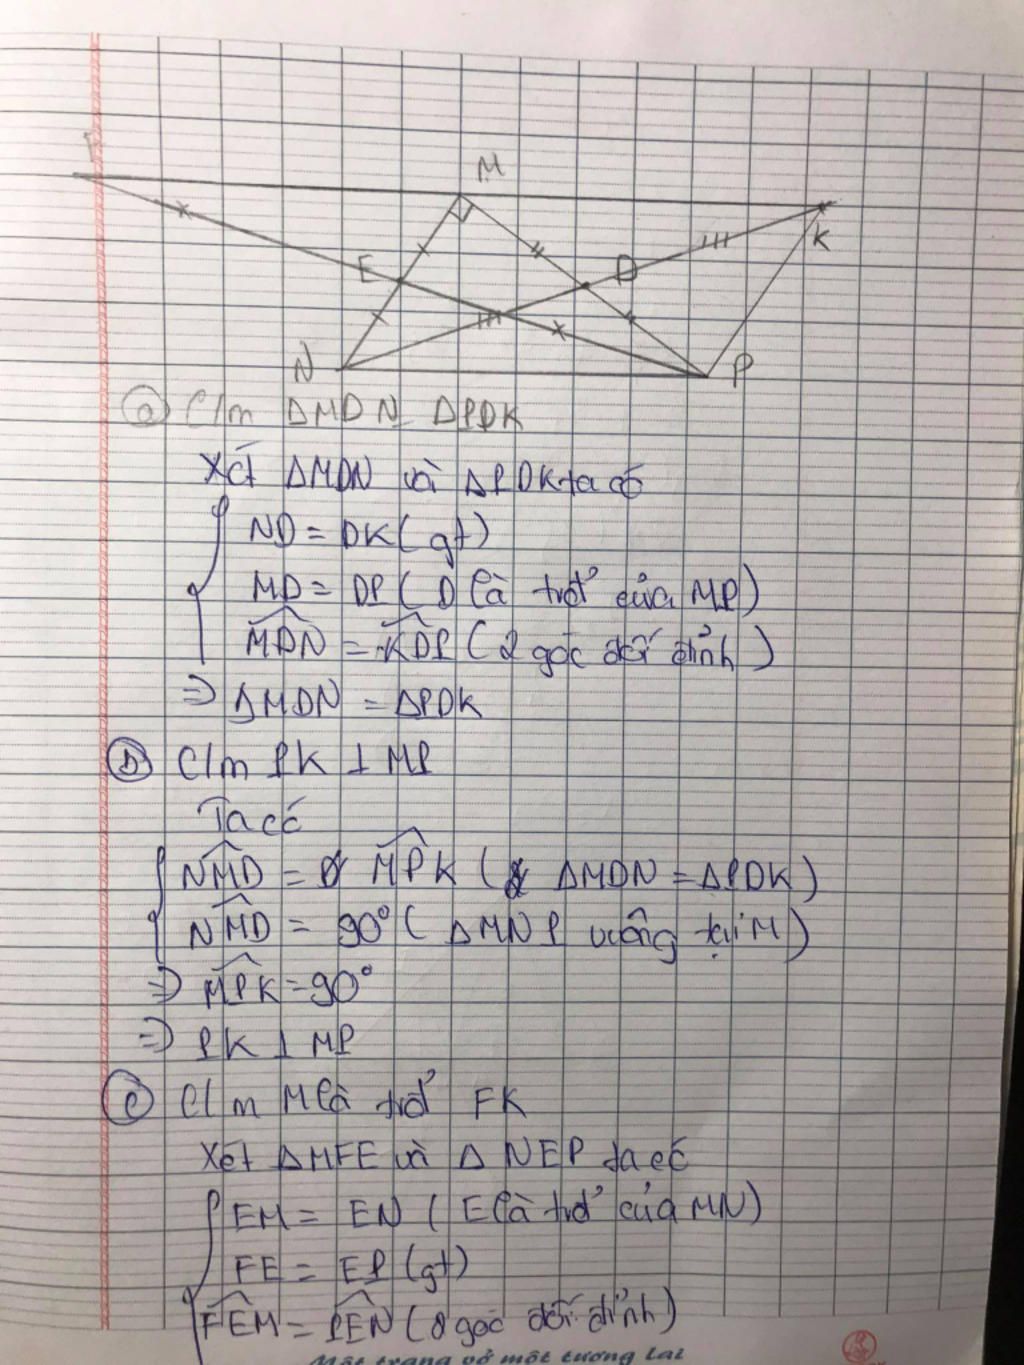 F
M
K
E
D
N
P
a) C/m ΔMDN ΔPDK
Xét ΔMDN và ΔPDK ta có
ND = DK (gt)
MD = DP (D là trđ' của MP)
MDN = KDP (2 góc đối đỉnh)
=> ΔMDN = ΔPDK
b) C/m PK ⊥ MP
Ta có
NMD = MPK (ΔMDN = ΔPDK)
NMD = 90° (ΔMNP vuông tại M)
=> MPK = 90°
=> PK ⊥ MP
c) C/m M là trđ' FK
Xét ΔMFE và ΔNEP ta có
EM = EN (E là trđ' của MN)
FE = EP (gt)
FEM = PEN (2 góc đối đỉnh)
Một trang vở một tương lai